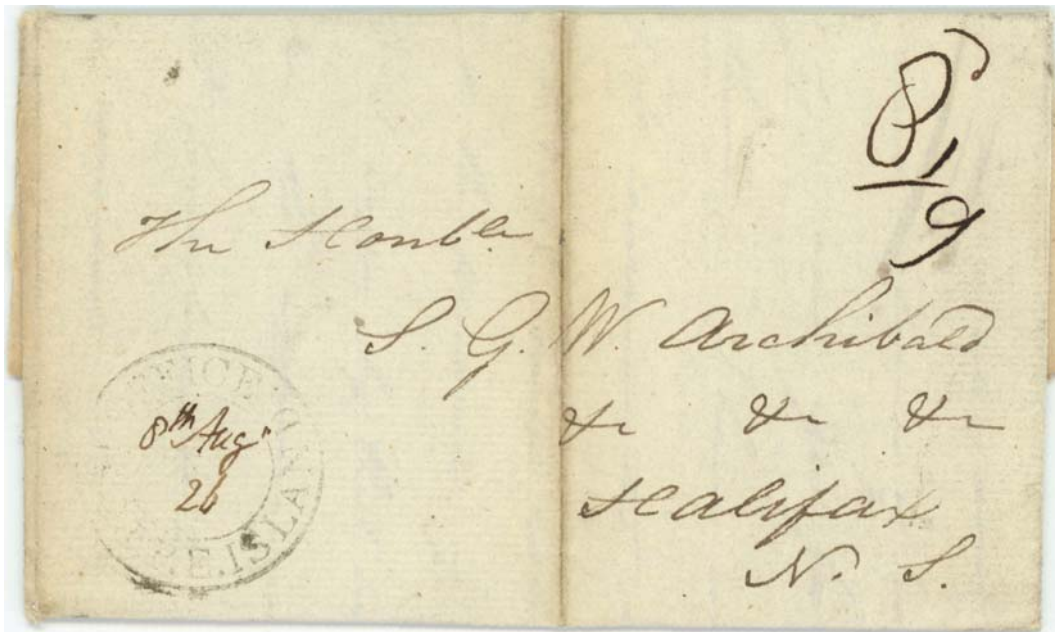 8
1/9
The Honble
S. G. W. Archibald
&c &c &c
Halifax
N. S.
OFFICE
8th Augt
26
P.E.ISLAND